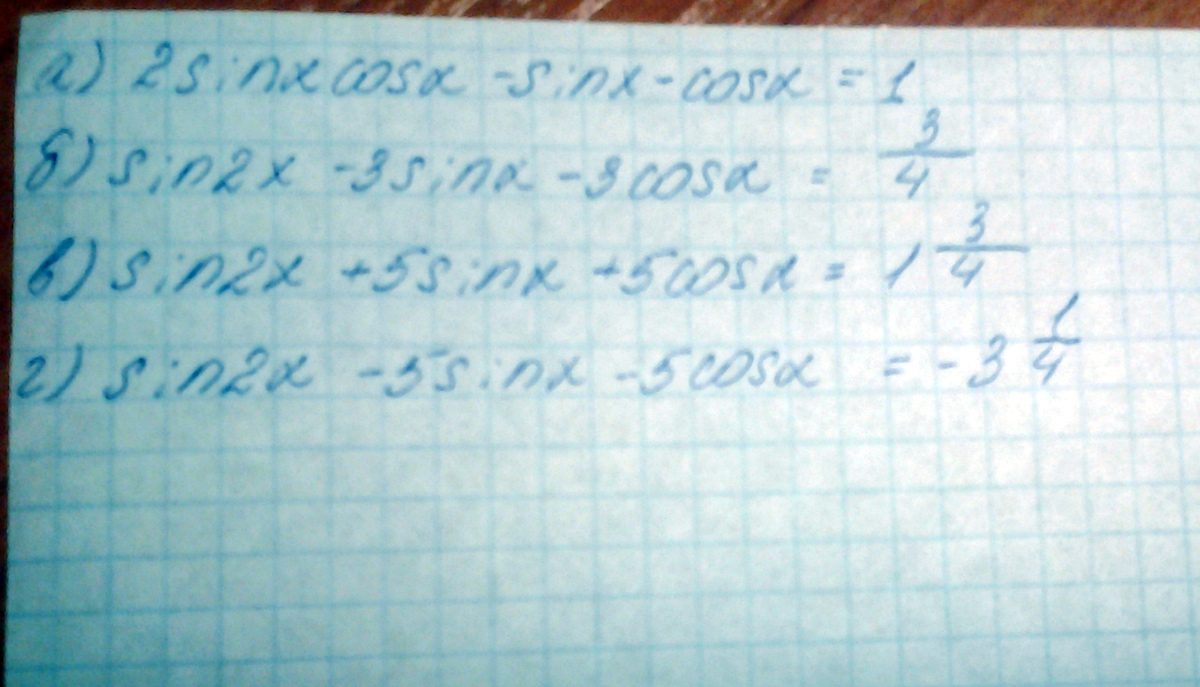 а) 2sinx cosx - sinx - cosx = 1
б) sin2x - 3sinx - 3cosx = 3/4
в) sin2x + 5sinx + 5cosx = 1 3/4
г) sin2x - 5sinx - 5cosx = -3 1/4